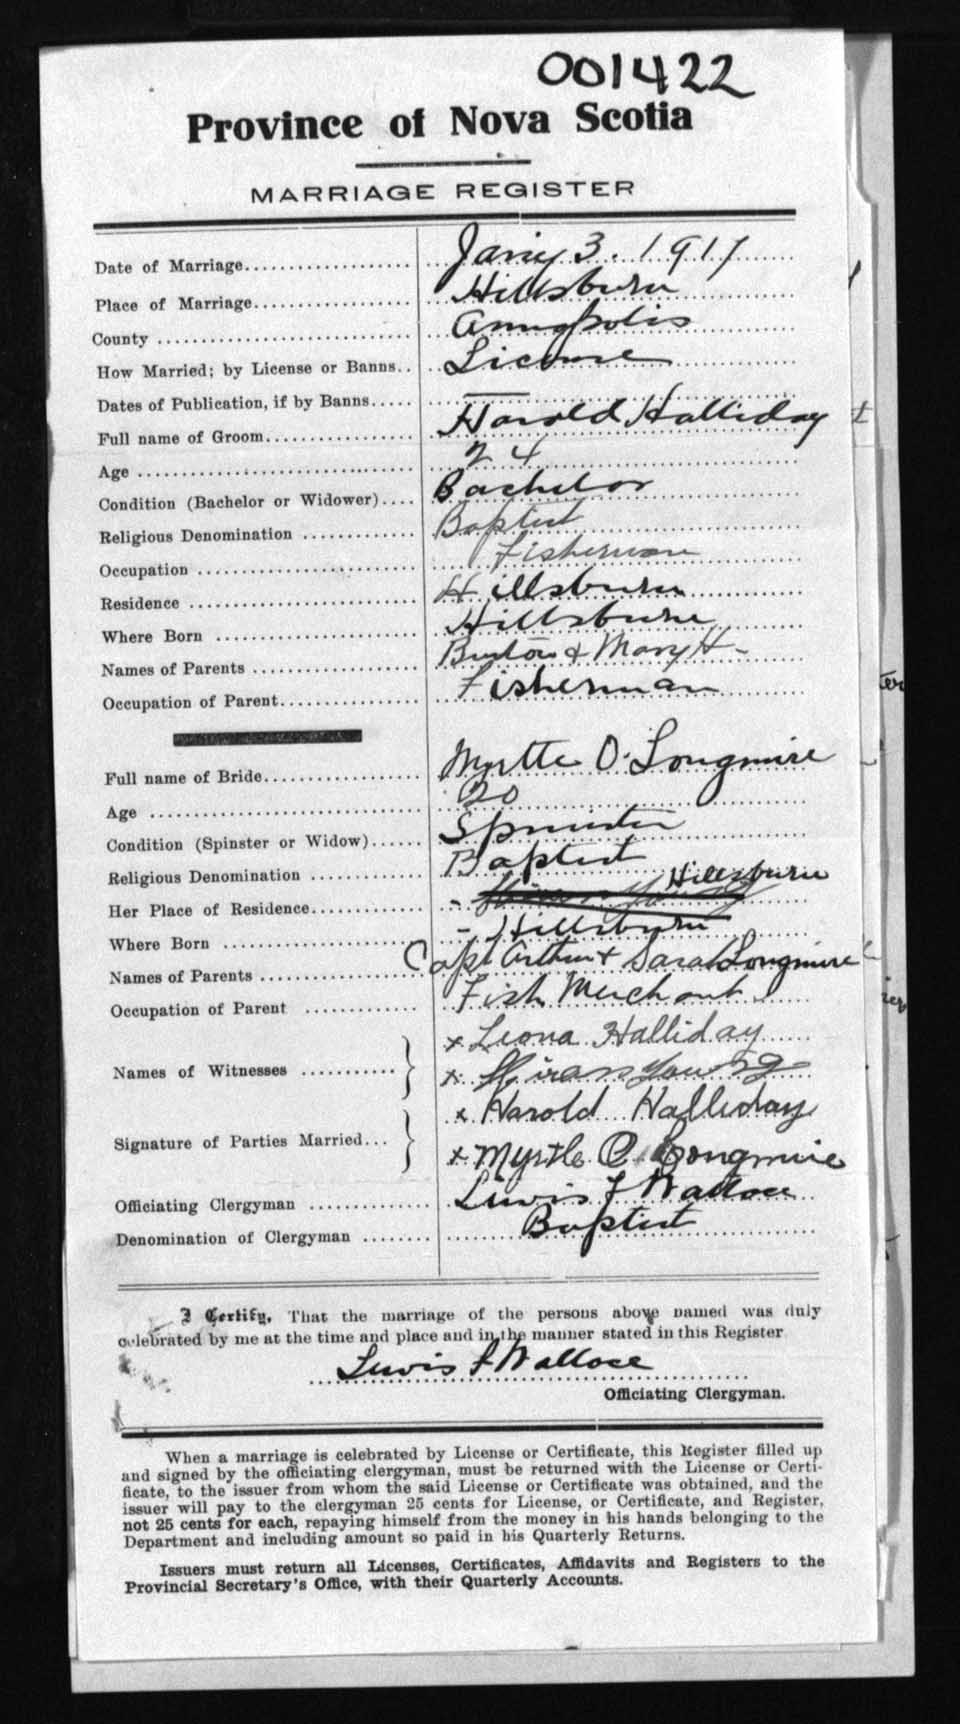 001422
Province of Nova Scotia
MARRIAGE REGISTER
Date of Marriage................... Jany 3. 1917
Place of Marriage.................. Hillsburn
County ............................. Annapolis
How Married; by License or Banns.. License
Dates of Publication, if by Banns..... —
Full name of Groom................ Harold Halliday
Age ............................... 24
Condition (Bachelor or Widower).... Bachelor
Religious Denomination ............. Baptist
Occupation ......................... Fisherman
Residence .......................... Hillsburn
Where Born ....................... Hillsburn
Names of Parents .................. Burton & Mary H -
Occupation of Parent................ Fisherman
Full name of Bride.................. Myrtle O. Longmire
Age ............................... 20
Condition (Spinster or Widow)...... Spinster
Religious Denomination ............. Baptist
Her Place of Residence............. Hillsburn
Where Born ....................... - Hillsburn
Names of Parents ................. Capt Arthur & Sarah Longmire
Occupation of Parent .............. Fish Merchant
Names of Witnesses ............ } x Leona Halliday
x Hiram Young
Signature of Parties Married... } x Harold Halliday
x Myrtle O. Longmire
Officiating Clergyman .............. Lewis F Wallace
Denomination of Clergyman ........ Baptist
I Certify, That the marriage of the persons above named was duly
celebrated by me at the time and place and in the manner stated in this Register
Lewis F Wallace
Officiating Clergyman.
When a marriage is celebrated by License or Certificate, this Register filled up
and signed by the officiating clergyman, must be returned with the License or Certi-
ficate, to the issuer from whom the said License or Certificate was obtained, and the
issuer will pay to the clergyman 25 cents for License, or Certificate, and Register,
not 25 cents for each, repaying himself from the money in his hands belonging to the
Department and including amount so paid in his Quarterly Returns.
Issuers must return all Licenses, Certificates, Affidavits and Registers to the
Provincial Secretary's Office, with their Quarterly Accounts.